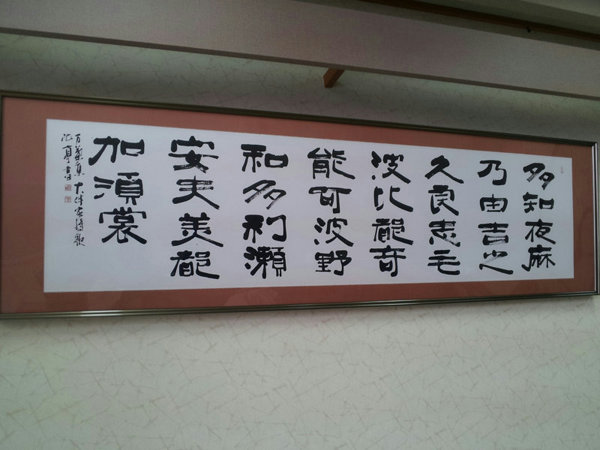 多知夜麻
乃由吉之
久良志毛
波比都奇
能可波野
和多利瀬
安夫美都
加須裳
万葉集 大伴家持歌
書